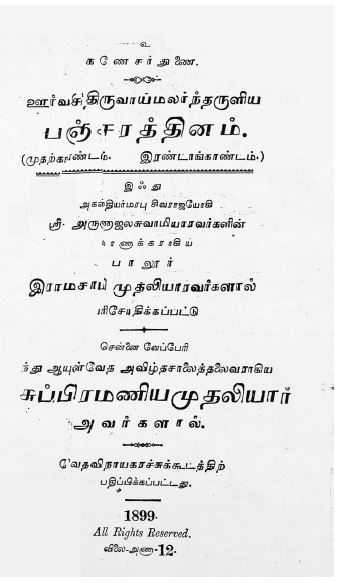 உ
கணேசர்துணை.
ஊர்வசிதிருவாய்மலர்ந்தருளிய
பஞ்சரத்தினம்.
(முதற்காண்டம். இரண்டாங்காண்டம்.)
இஃது
அகஸ்தியர்மரபு சிவராஜயோகி
ஸ்ரீ. அருணாஜலசுவாமியாரவர்களின்
பாலூர்
இராமசாமி முதலியாரவர்களால்
பரிசோதிக்கப்பட்டு
சென்னை வேப்பேரி
ஆயுள்வேத அவிழ்தசாலைத்தலைவராகிய
சுப்பிரமணியமுதலியார்
அவர்களால்.
வேதவிநாயகரச்சுக்கூடத்திற்
பதிப்பிக்கப்பட்டது.
1899.
All Rights Reserved.
விலை-அணா-12.